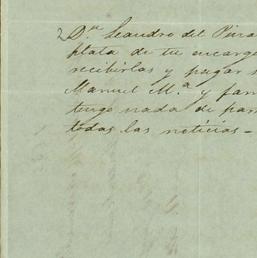 2 Dn. Leandro del
plata de tu encarg
recibirlas y pagar
Manuel M.a y fam
tengo nada de par
todas las noticias -